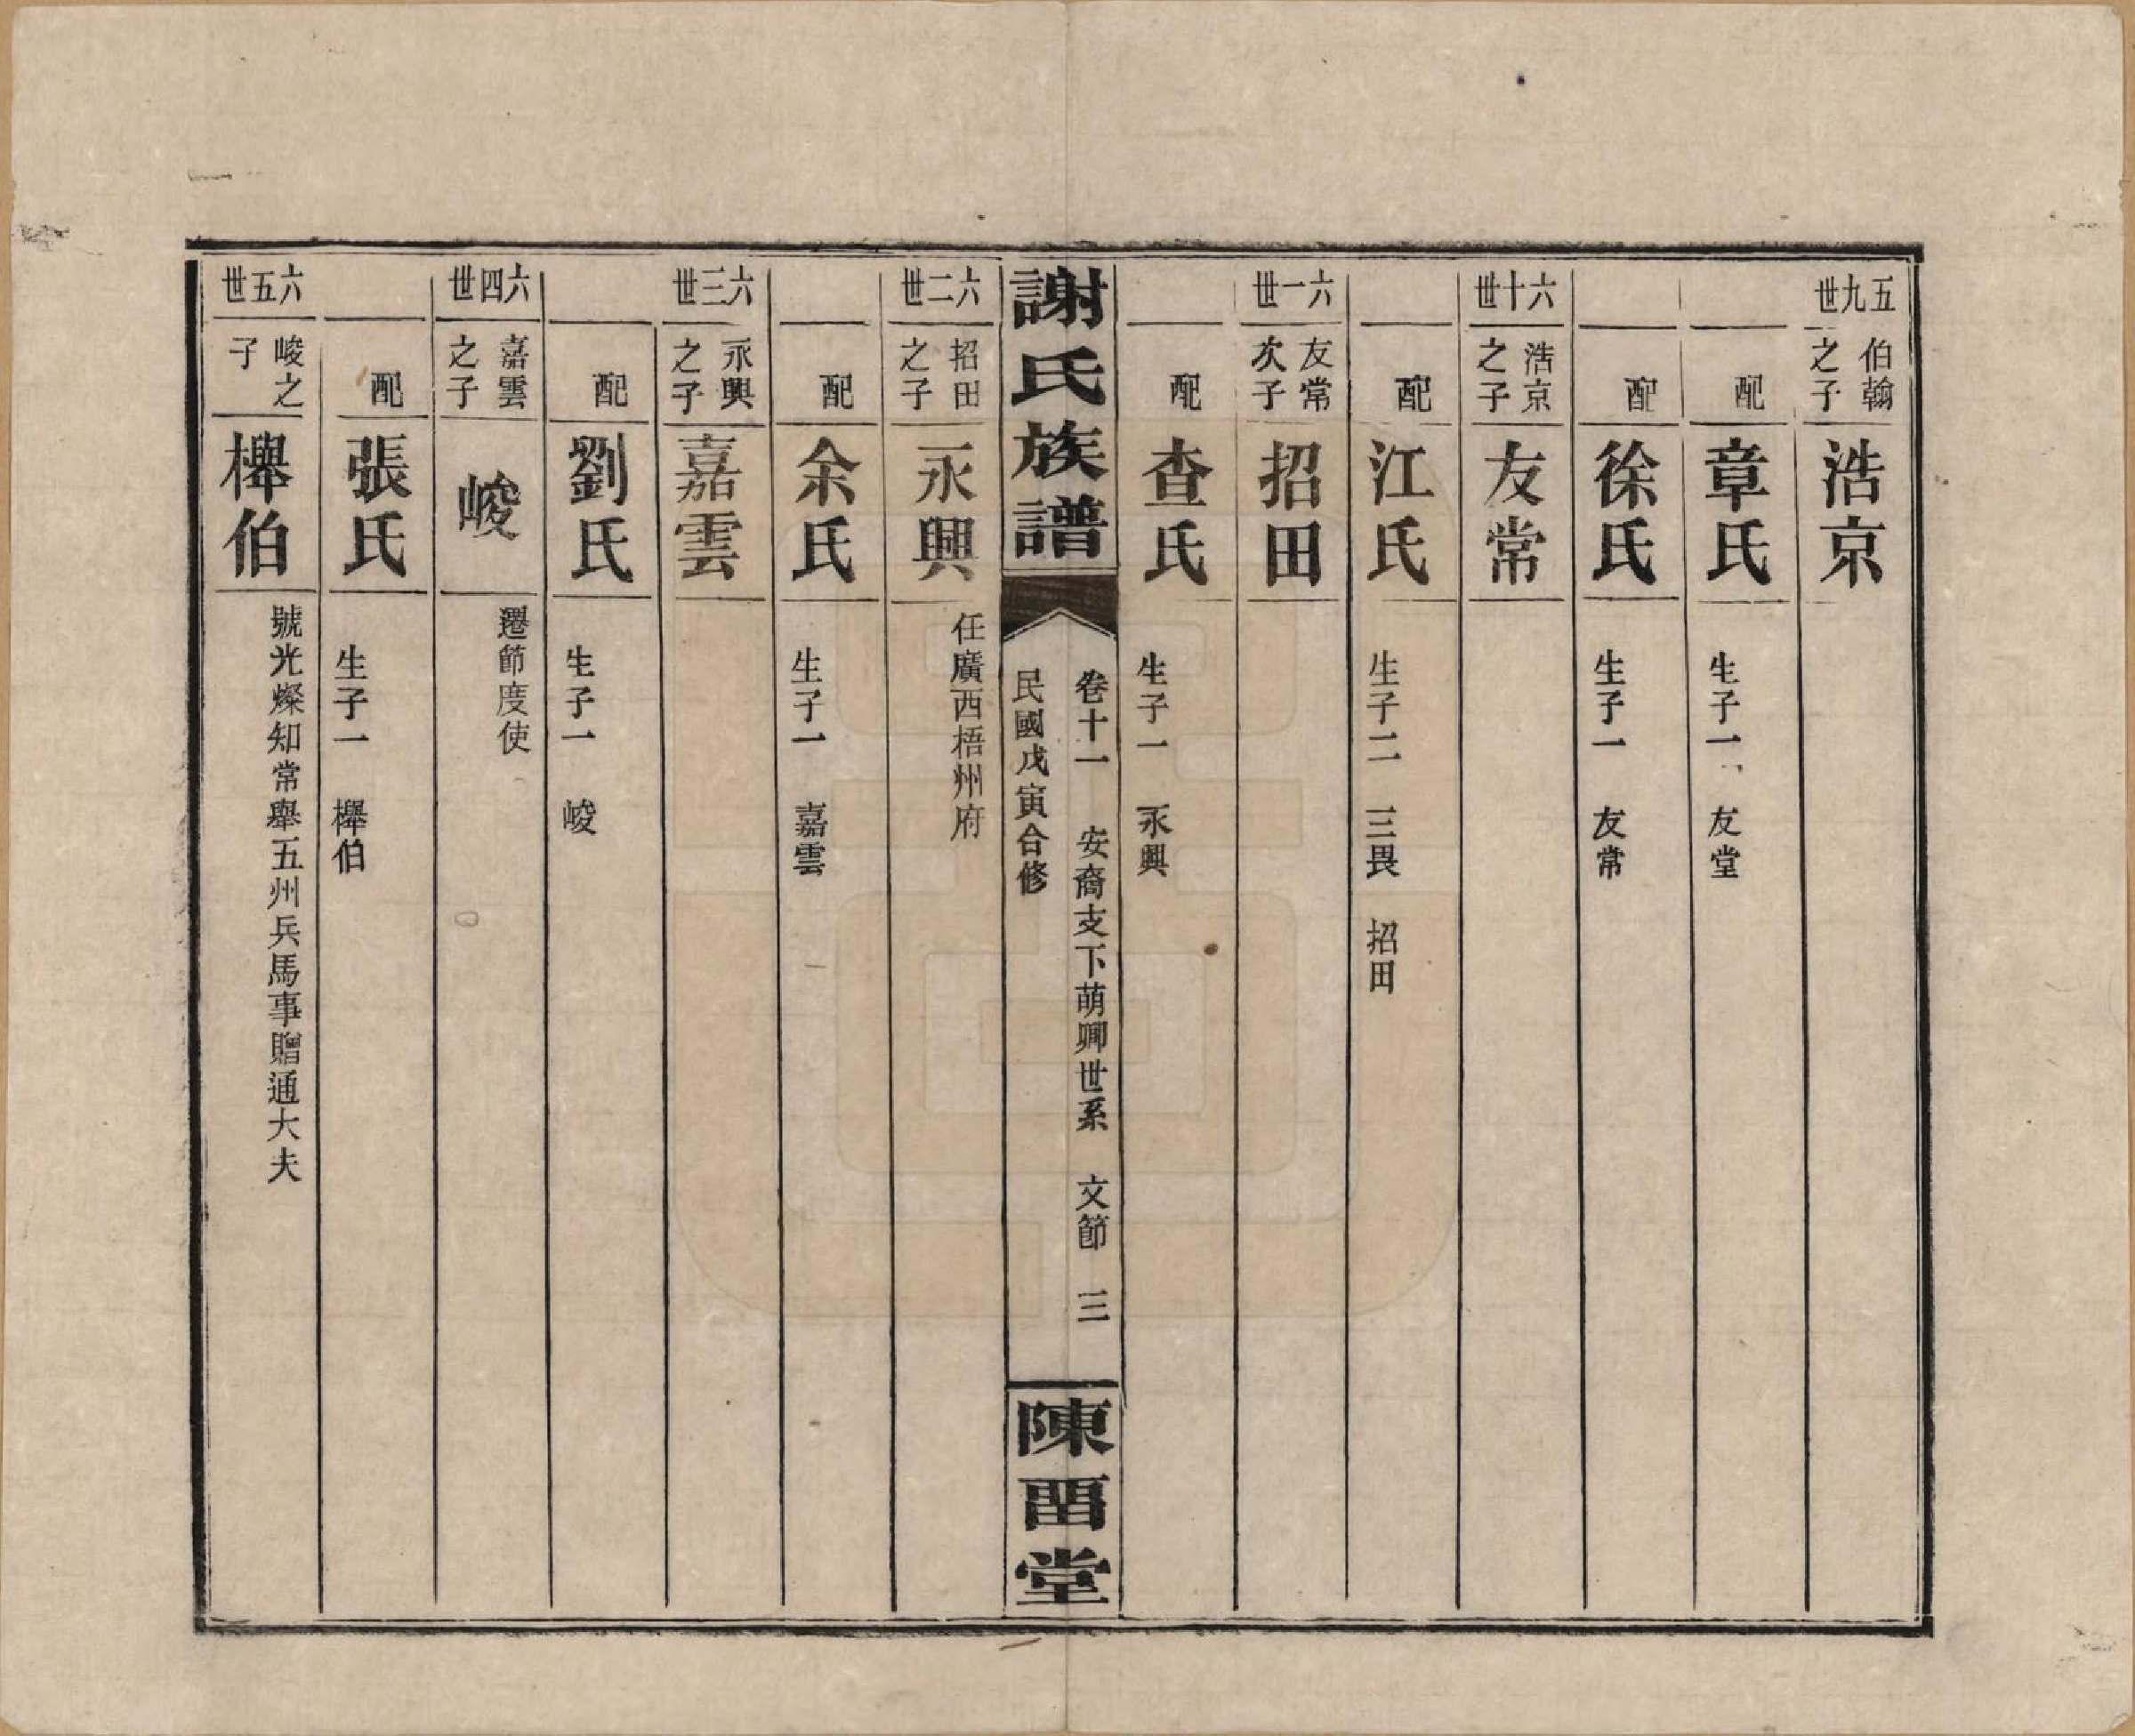 五九世 伯翰之子 浩京
配 章氏 生子一 友堂
配 徐氏 生子一 友常
六十世 浩京之子 友常
配 江氏 生子二 三畏 招田
六一世 友常次子 招田
配 查氏 生子一 永興
謝氏族譜
卷十一 安裔支下萌卿世系 文節 三
民國戊寅合修
陳畱堂
六二世 招田之子 永興 任廣西梧州府
配 余氏 生子一 嘉雲
六三世 永興之子 嘉雲
配 劉氏 生子一 峻
六四世 嘉雲之子 峻 遷節度使
配 張氏 生子一 櫸伯
六五世 峻之子 櫸伯 號光燦知常舉五州兵馬事贈通大夫